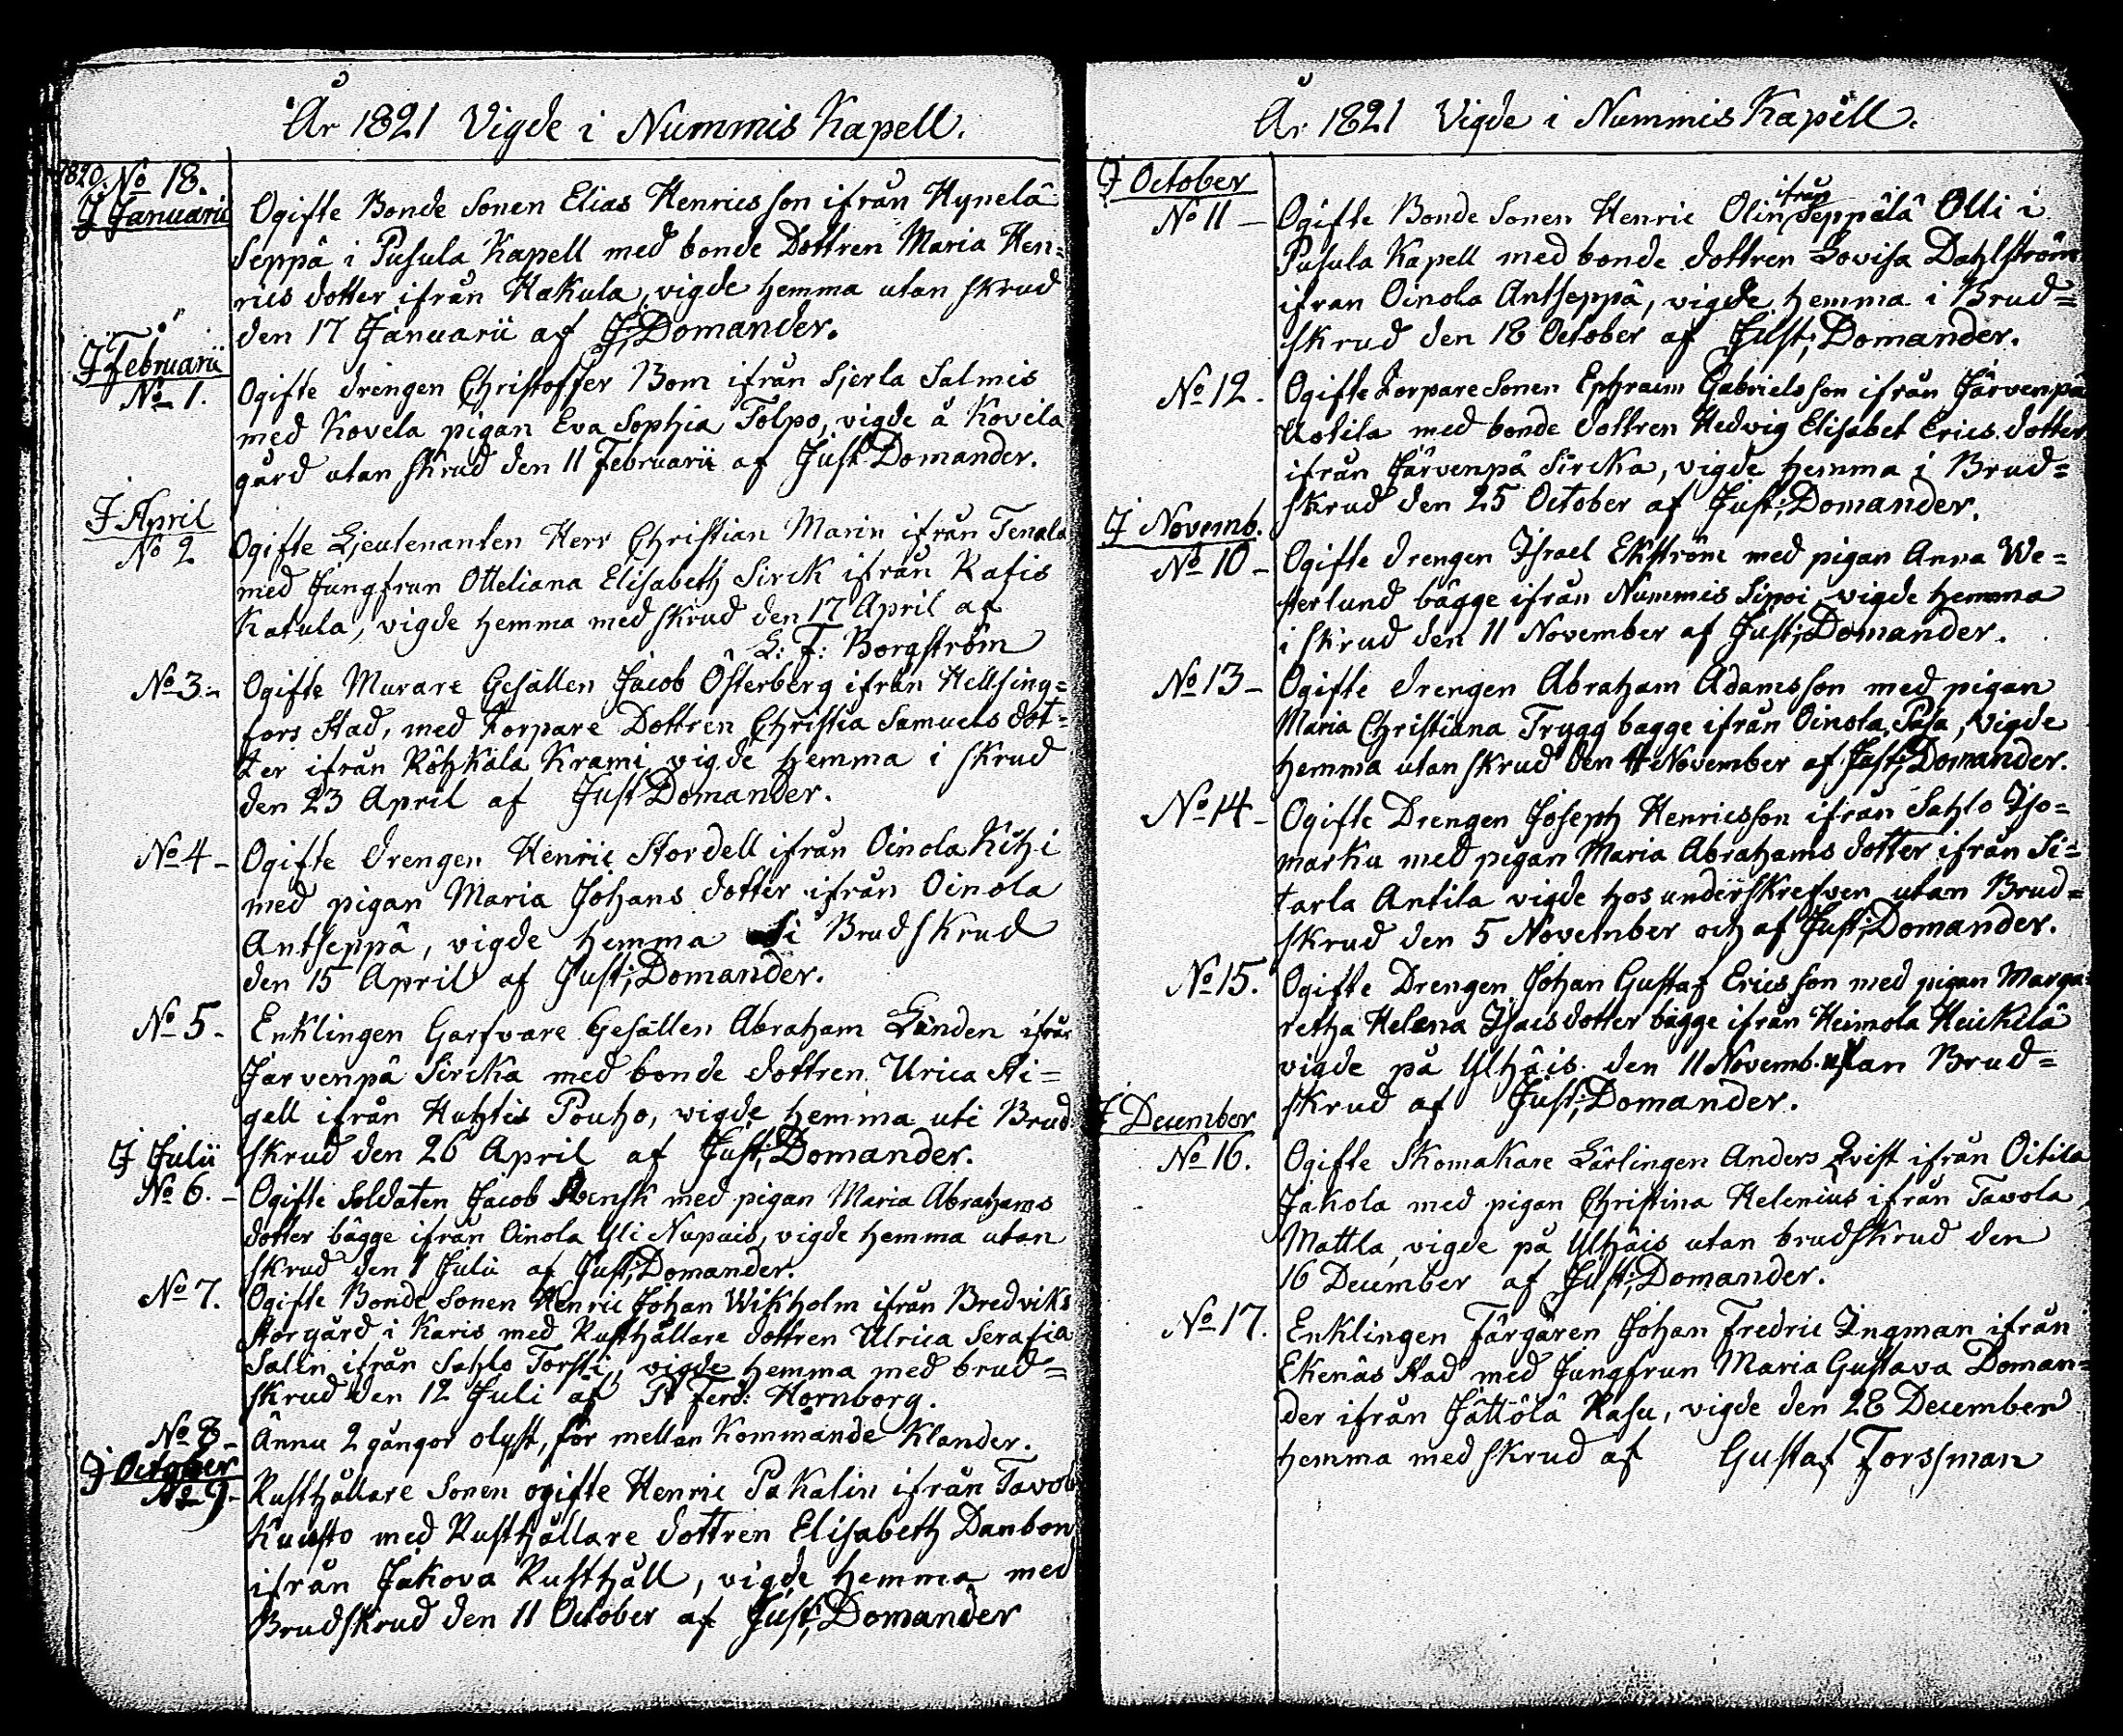 År 1821 Vigde i Nummis Kapell.
1820. No 18.
J Januarii
Ogifte Bonde Sonen Elias Henricsson ifrån Hynelä
Seppä i Pusula Kapell med bonde Dottren Maria Hen=
rics dotter ifrån Hakula, vigde hemma utan skrud
den 17 Januarii af J: Domander.
J Februarii
No 1.
Ogifte drengen Christoffer Bom ifrån Sjerla Salmis
med Kovela pigan Eva Sophia Tolpo, vigde å Kovela
gård utan skrud den 11 Februarii af Just Domander.
J April
No 2
Ogifte Ljeutenanten Herr Christian Marin ifrån Tenala
med Jungfrun Otteliana Elisabeth Sirck ifrån Rafis
Katula, vigde hemma med skrud den 17 April af
L: F: Borgström
No 3 -
Ogifte Murare Gesällen Jacob Österberg ifrån Hellsing=
fors Stad, med Torpare Dottren Christia Samuels dot=
ter ifrån Röhkälä Krami vigde hemma i skrud
den 23 April af Just Domander.
No 4 -
Ogifte drengen Henric Stordell ifrån Oinola Kihi
med pigan Maria Johans dotter ifrån Oinola
Antseppä, vigde hemma i Brudskrud
den 15 April af Just; Domander.
No 5 -
Enklingen Garfvare Gesällen Abraham Linden ifrån
Järvenpä Sircka med bonde dottren Urica Sti=
gell ifrån Huhtis Pouho, vigde hemma uti Brud
skrud den 26 April af Just; Domander.
J Julii
No 6. -
Ogifte Soldaten Jacob Svensk med pigan Maria Abrahams
dotter bägge ifrån Oinola Yli Nupais, vigde hemma utan
skrud den 1 Julii af Just; Domander.
No 7.
Ogifte Bonde Sonen Henric Johan Wikholm ifrån Bredviks
Storgård i Karis med Rusthållare dottren Ulrica Serafia
Salin ifrån Sahlo Torsti, vigde hemma med brud=
skrud den 12 Juli af Ferd: Hornborg.
No 8 -
Ännu 2 gångor olyst, för mellan Kommande Klander.
J October
No 9 -
Rusthållare Sonen ogifte Henric Pakalin ifrån Tavola
Kuusto med Rusthållare dottren Elisabeth Danbon
ifrån Jakova Rusthåll, vigde hemma med
Brudskrud den 11 October af Just; Domander
År 1821 Vigde i Nummis Kapell.
J October
No 11 -
Ogifte Bonde Sonen Henric Olin ifrån Seppälä Olli i
Pusula Kapell med bonde dottren Lovisa Dahlström
ifran Oinola Antseppä, vigde hemma i Brud=
skrud den 18 October af Just; Domander.
No 12.
Ogifte Torpare Sonen Ephraim Gabrielsson ifrån Järvenpä
Uotila med bonde dottren Hedvig Elisabet Erics dotter
ifrån Järvenpä Sircka, vigde hemma i Brud=
skrud den 25 October af Just; Domander.
J Novemb.
No 10 -
Ogifte drengen Israel Ekström med pigan Anna We=
sterlund bägge ifrån Nummis Sippi vigde hemma
i skrud den 11 November af Just; Domander.
No 13 -
Ogifte drengen Abraham Adamsson med pigan
Maria Christiana Trygg bagge ifrån Oinola Pasa, vigde
hemma utan skrud den 4 November af Just; Domander.
No 14 -
Ogifte Drengen Joseph Henricsson ifrån Sahlo Iso=
marku med pigan Maria Abrahams dotter ifrån Si=
tarla Antila vigde hos underskrefven utan Brud=
skrud den 5 November och af Just; Domander.
No 15.
Ogifte Drengen Johan Gustaf Ericsson med pigan Marga=
retha Helena Isaisdotter bägge ifrån Heimola Heickilä
vigde på Ylhäis den 11 Novemb. utan Brud=
skrud af Just; Domander.
J December
No 16.
Ogifte Skomakare Lärlingen Anders Qvist ifrån Oitila
Jakola med pigan Christina Helenius ifrån Tavola
Mattla, vigde på Ylhäis utan brudskrud den
16 December af Just; Domander.
No 17.
Enklingen Färgären Johan Fredric Ingman ifrån
Ekenäs Stad med Jungfrun Maria Gustava Doman=
der ifrån Jättölä Rasu, vigde den 28 December
hemma med skrud af Gustaf Forssman